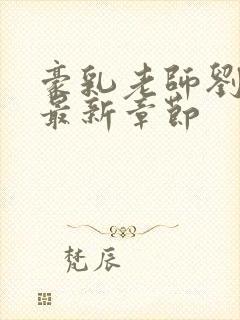 豪乳老師劉
最新章節
梵辰